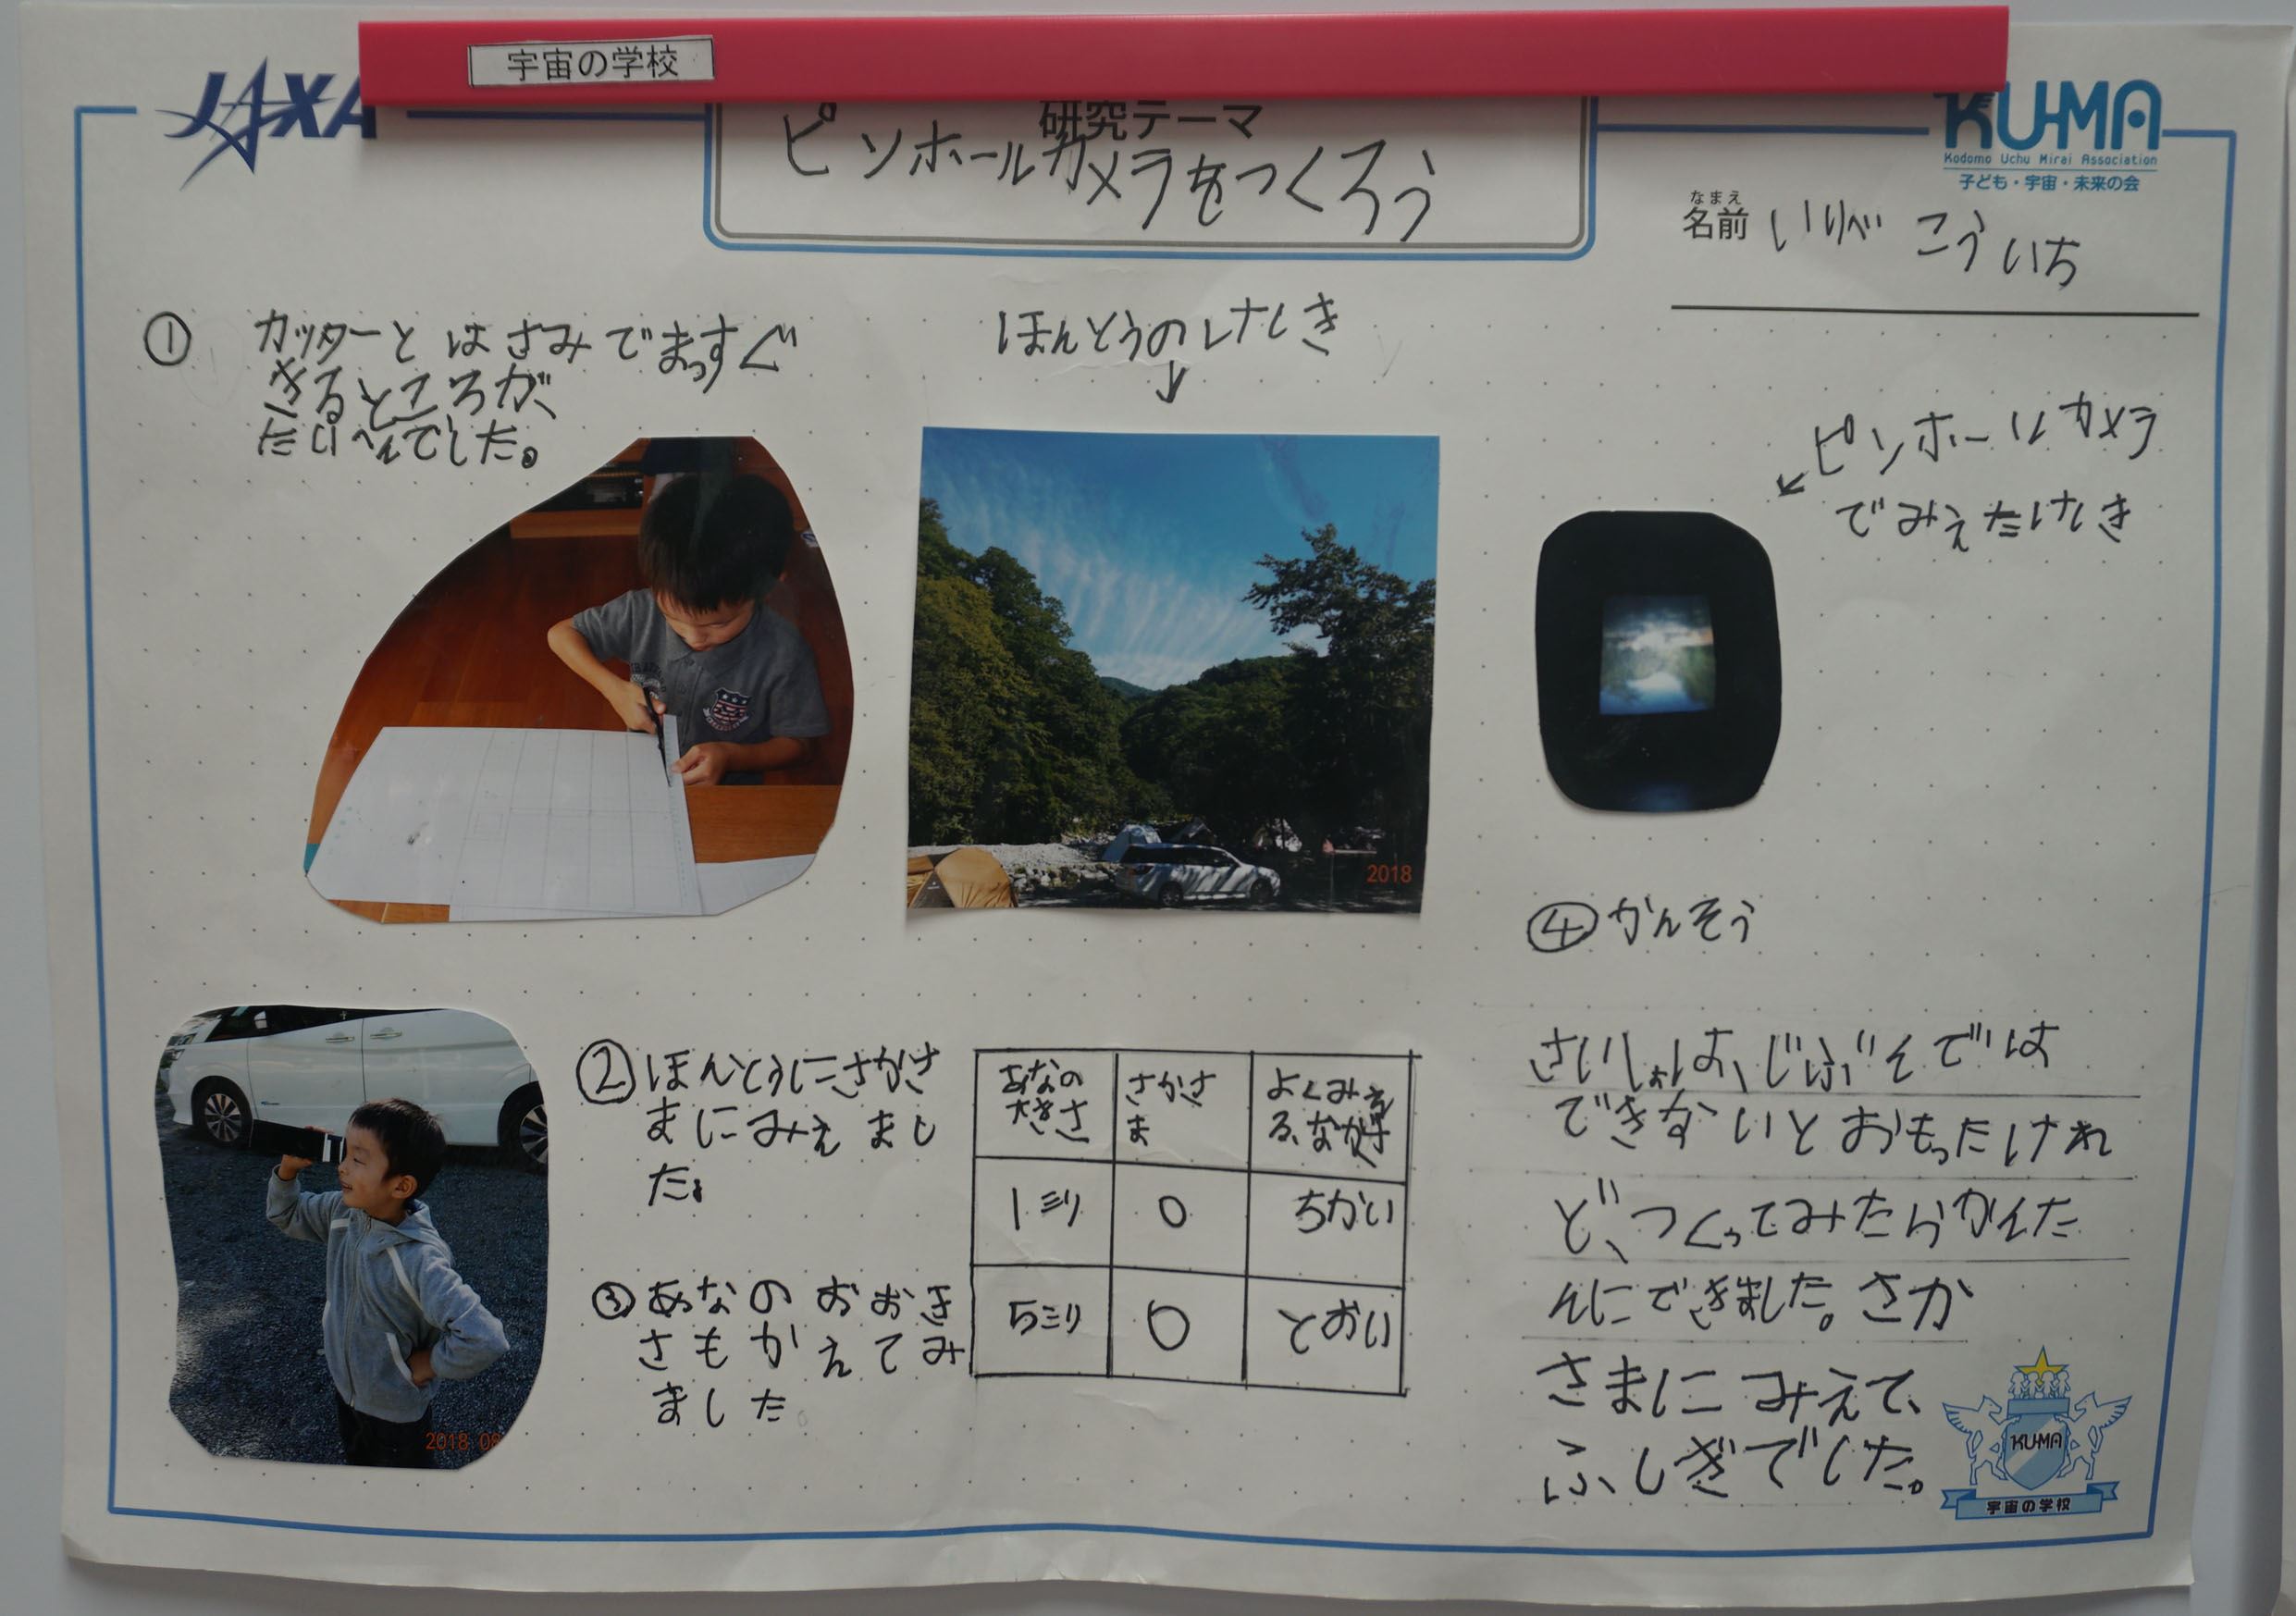 宇宙の学校
JAXA
研究テーマ
ピンホールカメラをつくろう
KU-MA
Kodomo Uchu Mirai Association
子ども・宇宙・未来の会
なまえ
名前 いりべ こういち
① カッターと はさみでまっすぐ
きるところが、
たいへんでした。
ほんとうのけしき
↓
2018
ピンホールカメラ
でみえたけしき
2018 08
②ほんとうにさかさ
まにみえまし
た。
③あなのおおき
さもかえてみ
ました。
あなの
大きさ
さかさ
ま
よくみえ
る、なが
1ミリ
○
ちかい
5ミリ
○
とおい
④かんそう
さいしょは、じぶんでは
できないとおもったけれ
ど、つくってみたらかんた
んにできました。さか
さまにみえて、
ふしぎでした。
KU-MA
宇宙の学校